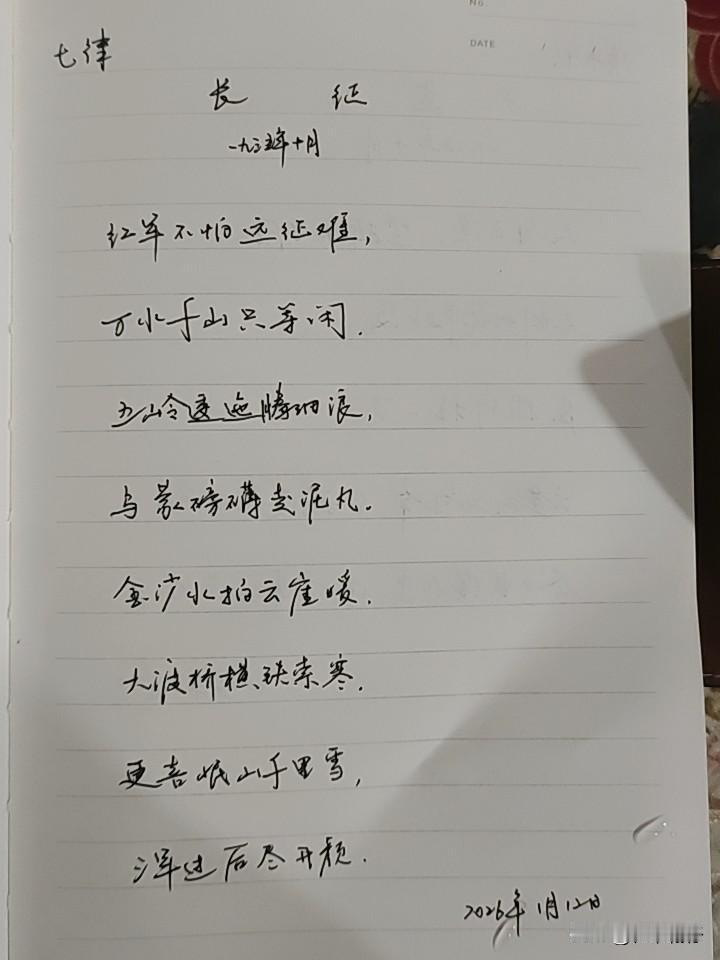 No.
DATE / /
七律
长 征
一九三五年十月
红军不怕远征难,
万水千山只等闲.
五岭逶迤腾细浪,
乌蒙磅礴走泥丸.
金沙水拍云崖暖.
大渡桥横铁索寒.
更喜岷山千里雪,
三军过后尽开颜.
2026年1月12日